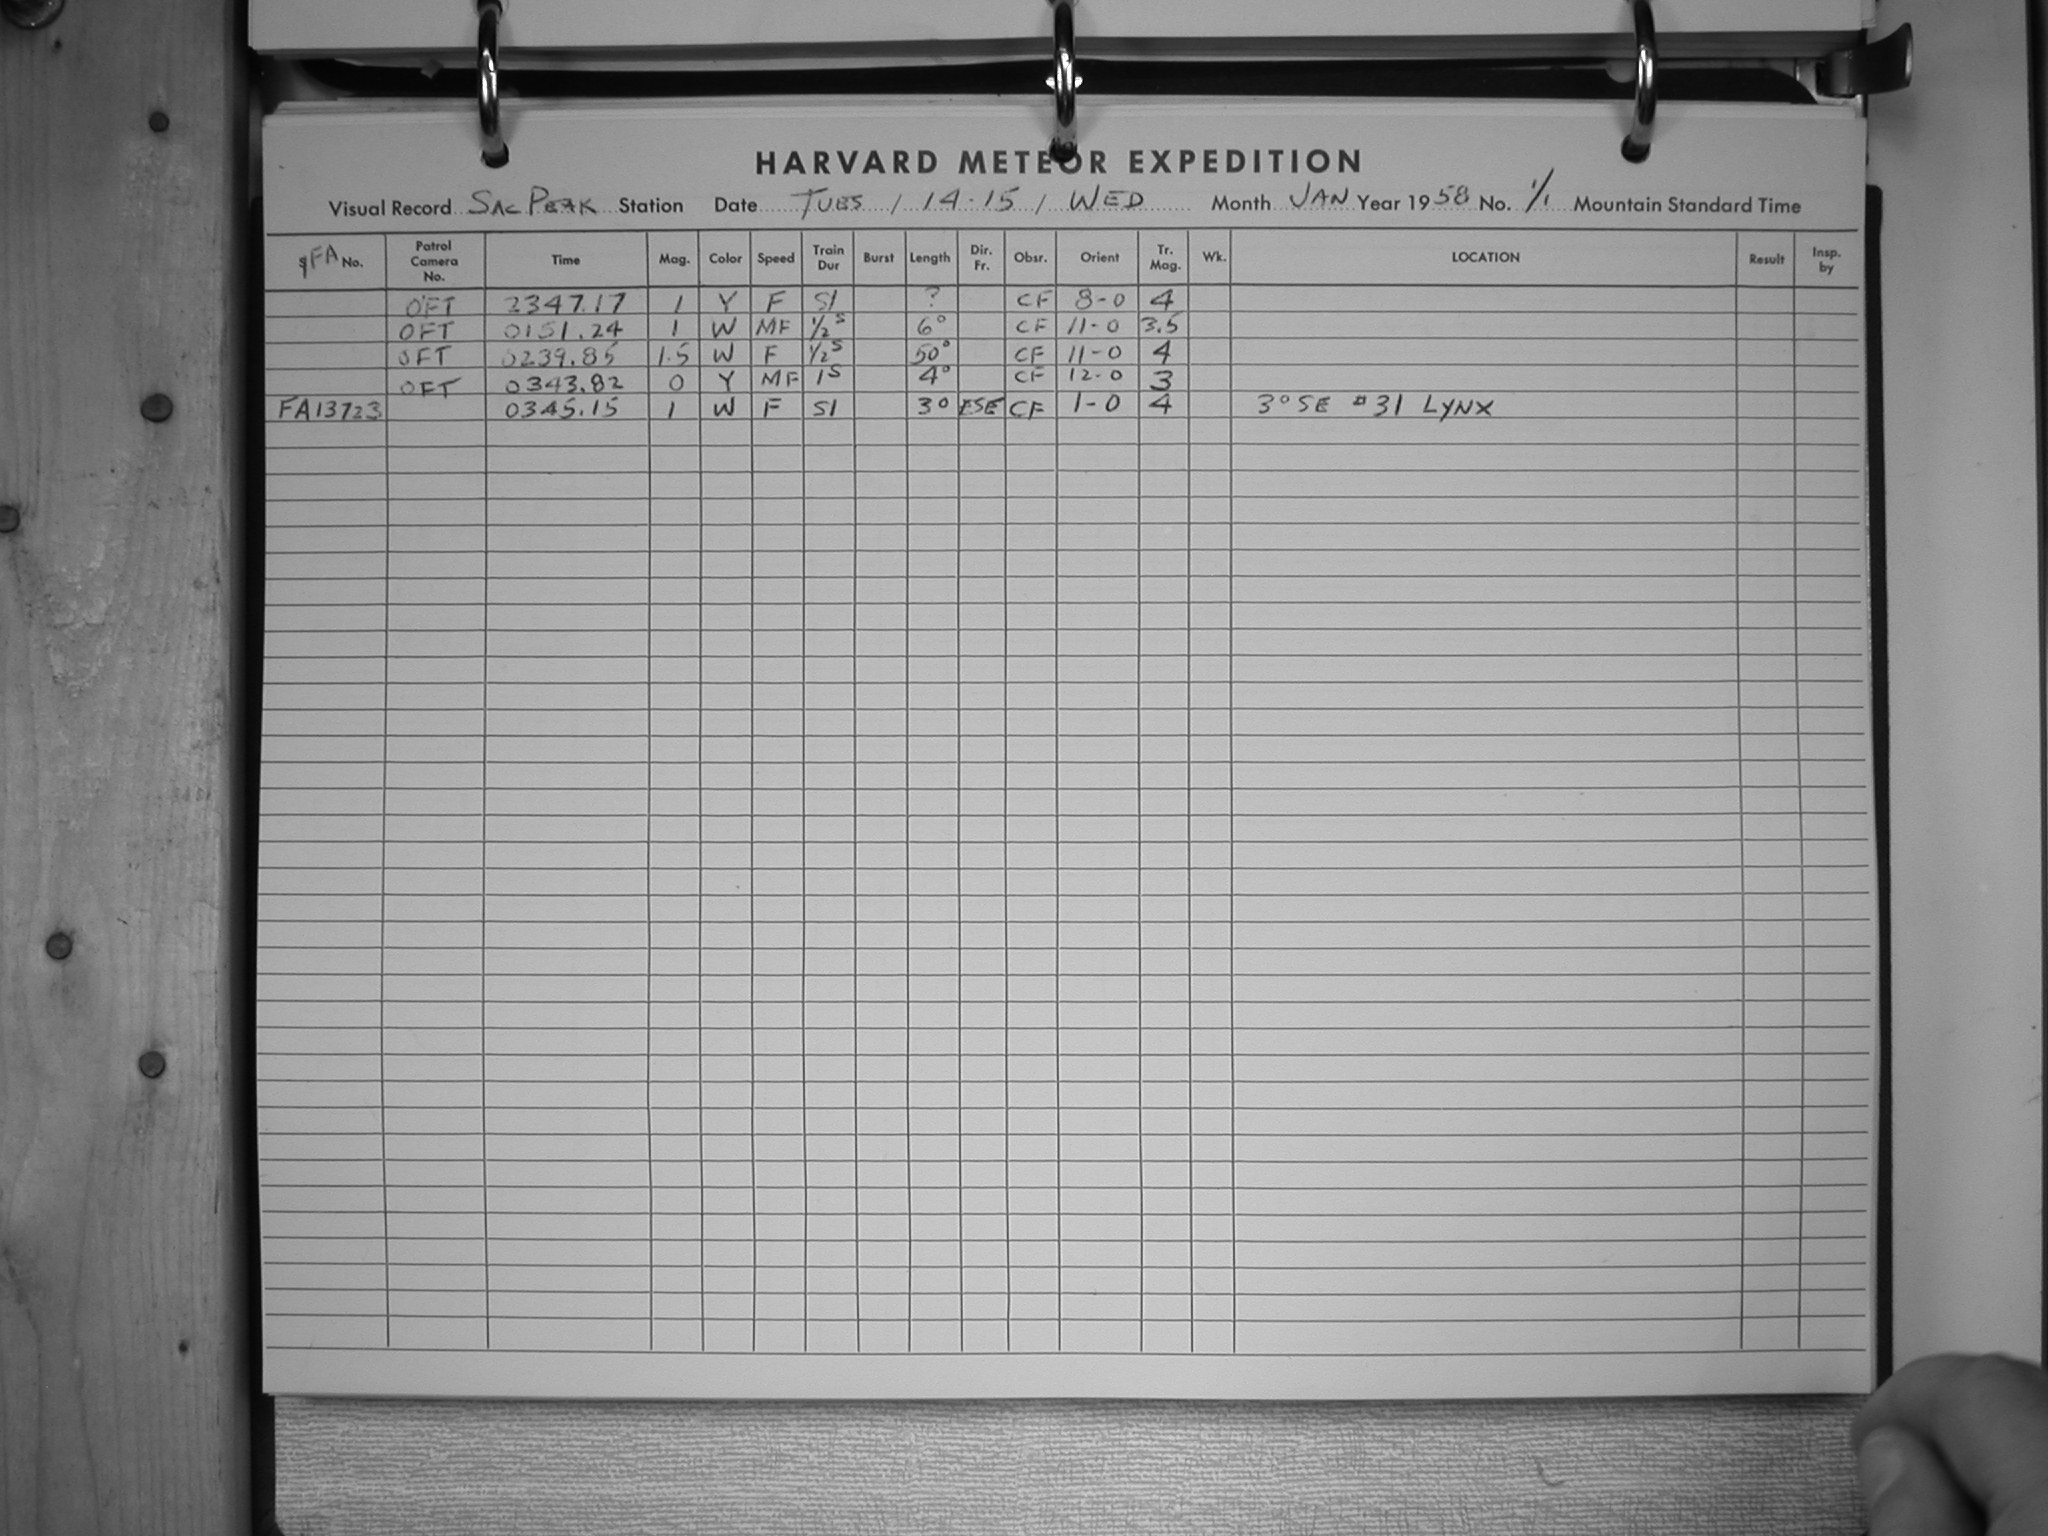 HARVARD METEOR EXPEDITION
Visual Record SAC PEAK Station Date TUES / 14-15 / WED Month JAN Year 1958 No. 1/1 Mountain Standard Time
FA No. Patrol Camera No. Time Mag. Color Speed Train Dur Burst Length Dir. Fr. Obsr. Orient Tr. Mag. Wk. LOCATION Result Insp. by
OFT 2347.17 1 Y F S1 ? CF 8-0 4
OFT 0151.24 1 W MF 1/2ˢ 6° CF 11-0 3.5
OFT 0239.85 1.5 W F 1/2ˢ 50° CF 11-0 4
OFT 0343.82 0 Y MF 1ˢ 4° CF 12-0 3
FA13723 0345.15 1 W F S1 3° ESE CF 1-0 4 3° SE #31 LYNX